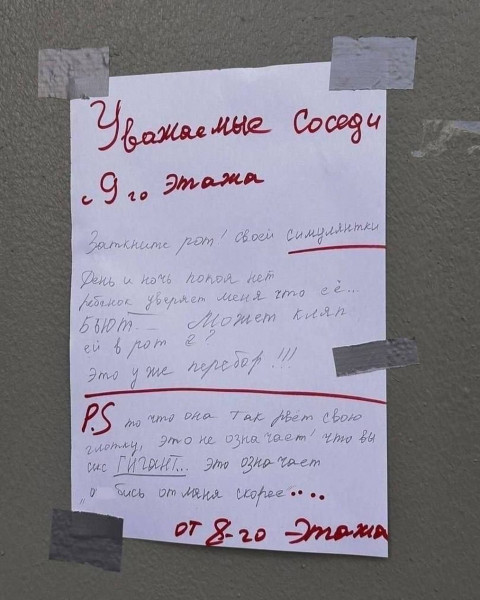 Уважаемые Соседи
с 9 го Этажа
Заткните рот! своей симулянтки
День и ночь покоя нет
ребёнок уверяет меня что её...
БЬЮТ... Может кляп
ей в рот ё?
Это уже перебор!!!
P.S то что она так рвёт свою
глотку, это не означает! что вы
сикс ГИГАНТ... это означает
бись от меня скорее....
от 8-го Этажа